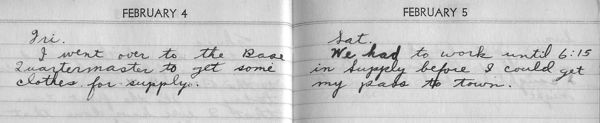 FEBRUARY 4
Fri.
I went over to the Base
Quartermaster to get some
clothes for supply.
FEBRUARY 5
Sat.
We had to work until 6:15
in Supply before I could get
my pass to town.